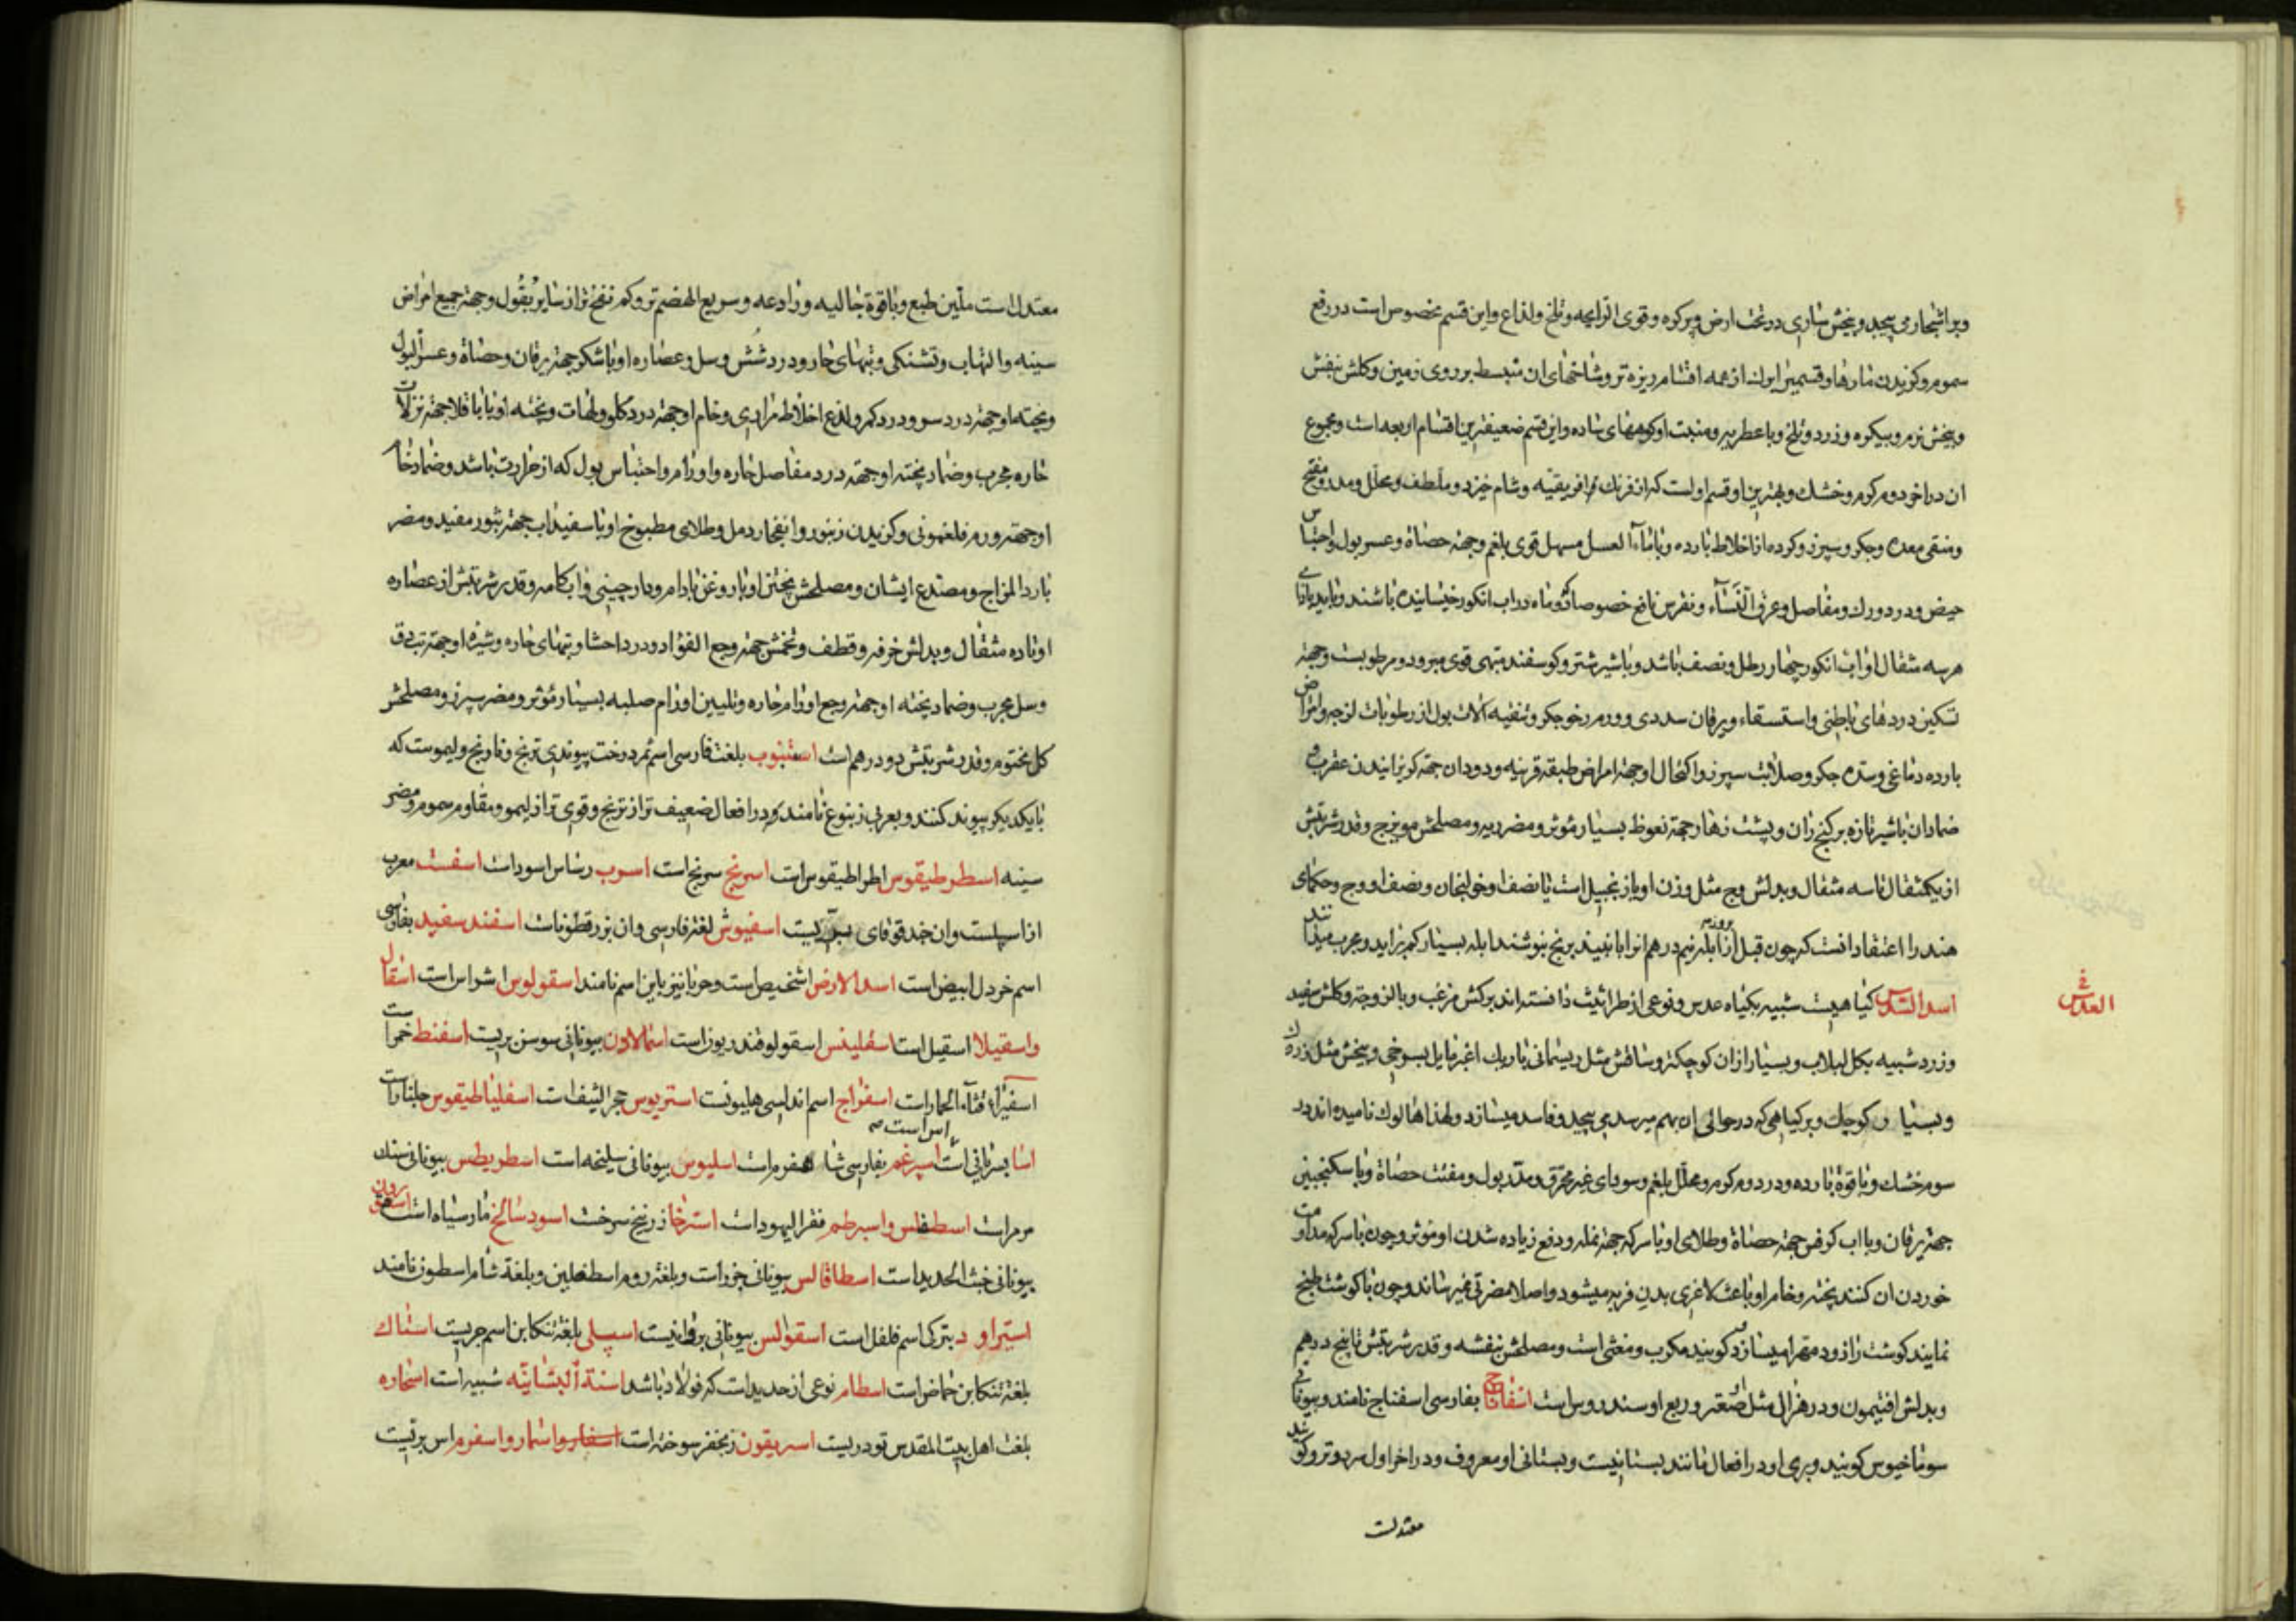 وبر اشجار می پیچد و بیخش ساری در تحت ارض و پر کره و قوی الرایحه و تلخ و لذاع و این قسم مخصوص است در رفع
سموم و کزیدن مارها و قسمی از ان از همه اقسام ریزه تر و شاخهای ان منبسط بر روی زمین و کلش بنفش
و بیخش نرم و بیکره و زرد و تلخ و با عطریه و منبت او کوههای ساده و این قسم ضعیفترین اقسام اربعه است و مجموع
ان در اخر دوم کرم و خشک و بهترین او قسم اول است که از فرنک و افریقیه و شام خیزد و ملطف و محلل و مدر و مفتح
و منقی معده و جکر و سپرز و کرده از اخلاط بارده و با ماء العسل مسهل قوی بلغم و جهة حصاة و عسر بول و احتباس
حیض و درد ورک و مفاصل و عرق النساء و نقرس نافع خصوصا که دو ماه در اب انکور خیسانیده باشند و باید بازای
هر سه مثقال او اب انکور چهار رطل و نصف باشد و با شیر شتر و کوسفند مبهی قوی مبرود و مرطوبست و جهة
تسکین دردهای باطنی و استسقاء و یرقان سددی و ورم رخو جکر و تنقیه الات بول از رطوبات لزجه و امراض
بارده دماغی و سده جکر و صلابت سپرز و اکتحال او جهة امراض طبقه قرنیه و دودان جهة کریزانیدن عقرب و
ضماد ان با شیر تازه بر کنج ران و پشت زهار جهة نعوظ بسیار مؤثر و مضر ریه و مصلحش مویزج و قدر شربتش
از یکمثقال تا سه مثقال و بدلش وج مثل وزن او یا زنجبیل است با نصف او خولنجان و نصف او وج و حکمای
هند را اعتقاد انست که چون قبل از بروز ابله نیم درهم انرا با نبیند برنج بنوشند ابله بسیار کم براید و مجرب میدانند
اسد العدس کیاهیست شبیه بکیاه عدس و نوعی از طراثیث دانسته اند برکش مزغب و با لزوجة و کلش سفید
و زرد شبیه بکل لبلاب و بسیار از ان کوچکتر و ساقش مثل ریسمانی باریک اغبر مایل بسرخی و بیخش مثل زردک
و بسیار کوچک و بر کیاهی که در حوالی ان بهم میرسد می پیچد و فاسد میسازد و لهذا هالوک نامیده اند در
سوم خشک و با قوة بارده و در دوم کرم و محلل بلغم و سودای غیر محترق و مدر بول و مفتت حصاة و با سکنجبین
جهة یرقان و با اب کرفس جهة حصاة و طلای او با سرکه جهة نمله و دفع زیاده شدن او مؤثر و چون با سرکه مداومت
خوردن ان کنند پخته و خام او باعث لاغری بدن فربه میشود و اصلا مضرتی نمیرساند و چون با کوشت طبخ
نمایند کوشت را زود مهرا میسازد و کویند مکرب و مغثی است و مصلحش بنفشه و قدر شربتش تا پنج درهم
و بدلش افتیمون و در هزال مثل او صعتر و ربع او سندروس است اسفاناخ بفارسی اسفناج نامند و بیونانی
سوماخیوس کویند و بری او در افعال مانند بستانیست و بستانی او معروف و در اخر اول سرد و تر و کویند
معتدلست
فی العدس
معتدل است ملین طبع و با قوة جالیه و رادعه و سریع الهضم تر و کم نفخ تر از سایر بقول و جهة جمیع امراض
سینه و التهاب و تشنکی و تبهای حار و درد شش و سل و عصاره او با شکر جهة یرقان و حصاة و عسر البول
و پخته او جهة درد سر و درد کمر و لذع اخلاط مراری و خام او جهة درد کلو و لهات و پخته او با باقلا جهة نزلات
حاره مجرب و ضماد پخته او جهة درد مفاصل حاره و اورام و احتباس بول که از حرارت باشد و ضماد خام
او جهة ورم فلغمونی و کزیدن زنبور و انفجار دمل و طلای مطبوخ او با سفیداب جهة بثور مفید و مضر
بارد المزاج و مصدع ایشان و مصلحش پختن او با روغن بادام و دارچینی و ابکامه و قدر شربتش از عصاره
او تا ده مثقال و بدلش خرفه و قطف و تخمش جهة وجع الفؤاد و درد احشا و تبهای حاره و شیره او جهة تب دق
و سل مجرب و ضماد پخته او جهة وجع اورام حاره و تلیین اورام صلبه بسیار مؤثر و مضر سپرز و مصلحش
کل مختوم و قدر شربتش دو درهم است استنبوب بلغت فارسی اسم ثمر درخت پیوندی ترنج و نارنج و لیموست که
با یکدیکر پیوند کنند و بعربی زنبوغ نامند و در افعال ضعیف تر از ترنج و قوی تر از لیمو و مقاوم سموم و مضر
سینه اسطرطیقوس اطراطیقوس است اسرنج سرنج است اسرب رصاص اسود است اسفست معرب
از اسپست و ان حندقوقای بریست اسفیوش لغة فارسی و ان بزر قطوناست اسفند سفید بفارسی
اسم خردل ابیض است اسد الارض اشخیص است و حربا نیز باین اسم نامند اسقولوس اشراس است اسقال
واسقیلا اسقیل است اسقلینس اسقولوقندریون است اسمالاون بیونانی سوسن بریست اسفنط خمر است
اسفیرا قثاء الحمار است اسفراج اسم اندلسی هلیونست استریوس حجر الشفاست اسقلیناطیقوس جلنار است
اسا بسریانی اس است اسپرغم بفارسی شاهسفرم است اسلیوس بیونانی سلیخه است اسطریطس بیونانی سنک
مرمر است اسطفاس و اسبرطم قفر الیهود است استرخا زرنیخ سرخست اسود سالخ مار سیاه است
بیونانی خبث الحدید است اسطاقالس بیونانی جزر است و بلغة روم اسطفلین و بلغة شام اسطون نامند
استیراو بترکی اسم فلفل است اسقوالس بیونانی بروانیست اسپلی بلغة تنکابن اسم جریست استاک
بلغة تنکابن حماض است اسطام نوعی از حدید است که فولاد باشد اسنة البشاینه شبیه است اسحاره
بلغت اهل بیت المقدس تودریست اسریقون زنجفر سوخته است اسفار و اسمار و اسفرم اس بریست